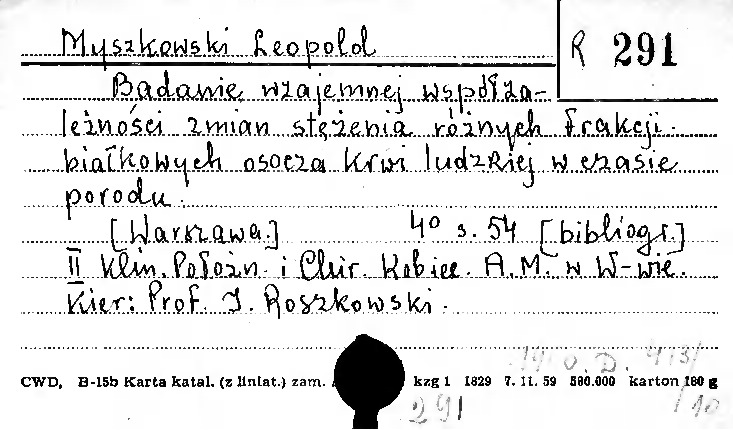 Myszkowski Leopold
R 291
Badanie wzajemnej współza-
leżności zmian stężenia różnych frakcji
białkowych osocza krwi ludzkiej w czasie
porodu.
[Warszawa.] 4° s. 54 [bibliogr.]
II Klin. Położn. i Chir. Kobiec. A.M. w W-wie.
Kier: Prof. I. Roszkowski.
CWD, B-15b Karta katal. (z liniat.) zam. kzg 1 1829 7. 11. 59 500.000 karton 180 g
291